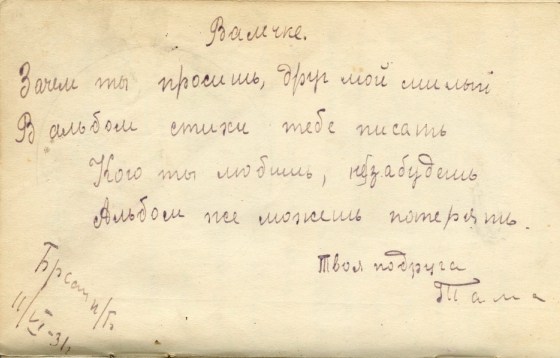 Валечке.
Зачем ты просишь, друг мой милый
В альбом стихи тебе писать
Кого ты любишь, не забудешь
Альбом же можешь потерять.
Твоя подруга
Тама
11/VI-31г